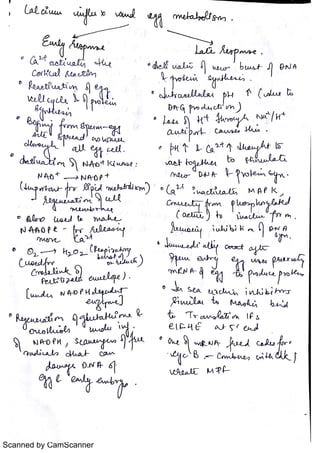 Calcium influx and egg metabolism.
Early Response
° Ca2+ activates the
Cortical Reaction
° Reactivation of egg
cell cycle & of protein
synthesis
° Begins from sperm-egg
site & spread as wave
through all egg cell.
° Activation of NAD+ Kinase:
NAD+ → NADP+
(Important for lipid metabolism)
→ Regeneration of cell
membrane
° Also used to make
NAADPR - for releasing
more Ca2+
° O2 → H2O2 (Respiratory
burst of
(used for
Crosslink of
fertilization envelope).
[under NADPH dependent
enzyme]
° Regeneration of glutathione &
ovothiols under inf.
of NADPH, scavengers of free
radicals that can
damage DNA of
egg & early embryo.
Late Response.
° Activation of new burst of DNA
& protein synthesis.
° Intracellular pH ↑ (due to
DAG production)
° Loss of H+ through Na+/H+
antiport causes this.
° pH ↑ & Ca2+ ↑ thought to
act together to stimulate
new DNA & protein syn.
° (Ca2+ inactivates MAPK,
converting from phosphorylated
(active) to inactive form.
Removing inhibition of DNA
syn.
° Immediately after
sperm entry egg uses
mRNA of egg to produce protein
° In sea urchin inhibitors
similar to Maskin bind
to Translation IFs
EIF4E at 5' end
° One of mRNA freed codes for
cyc B - Combines with cdk 1
create MPF
Scanned by CamScanner